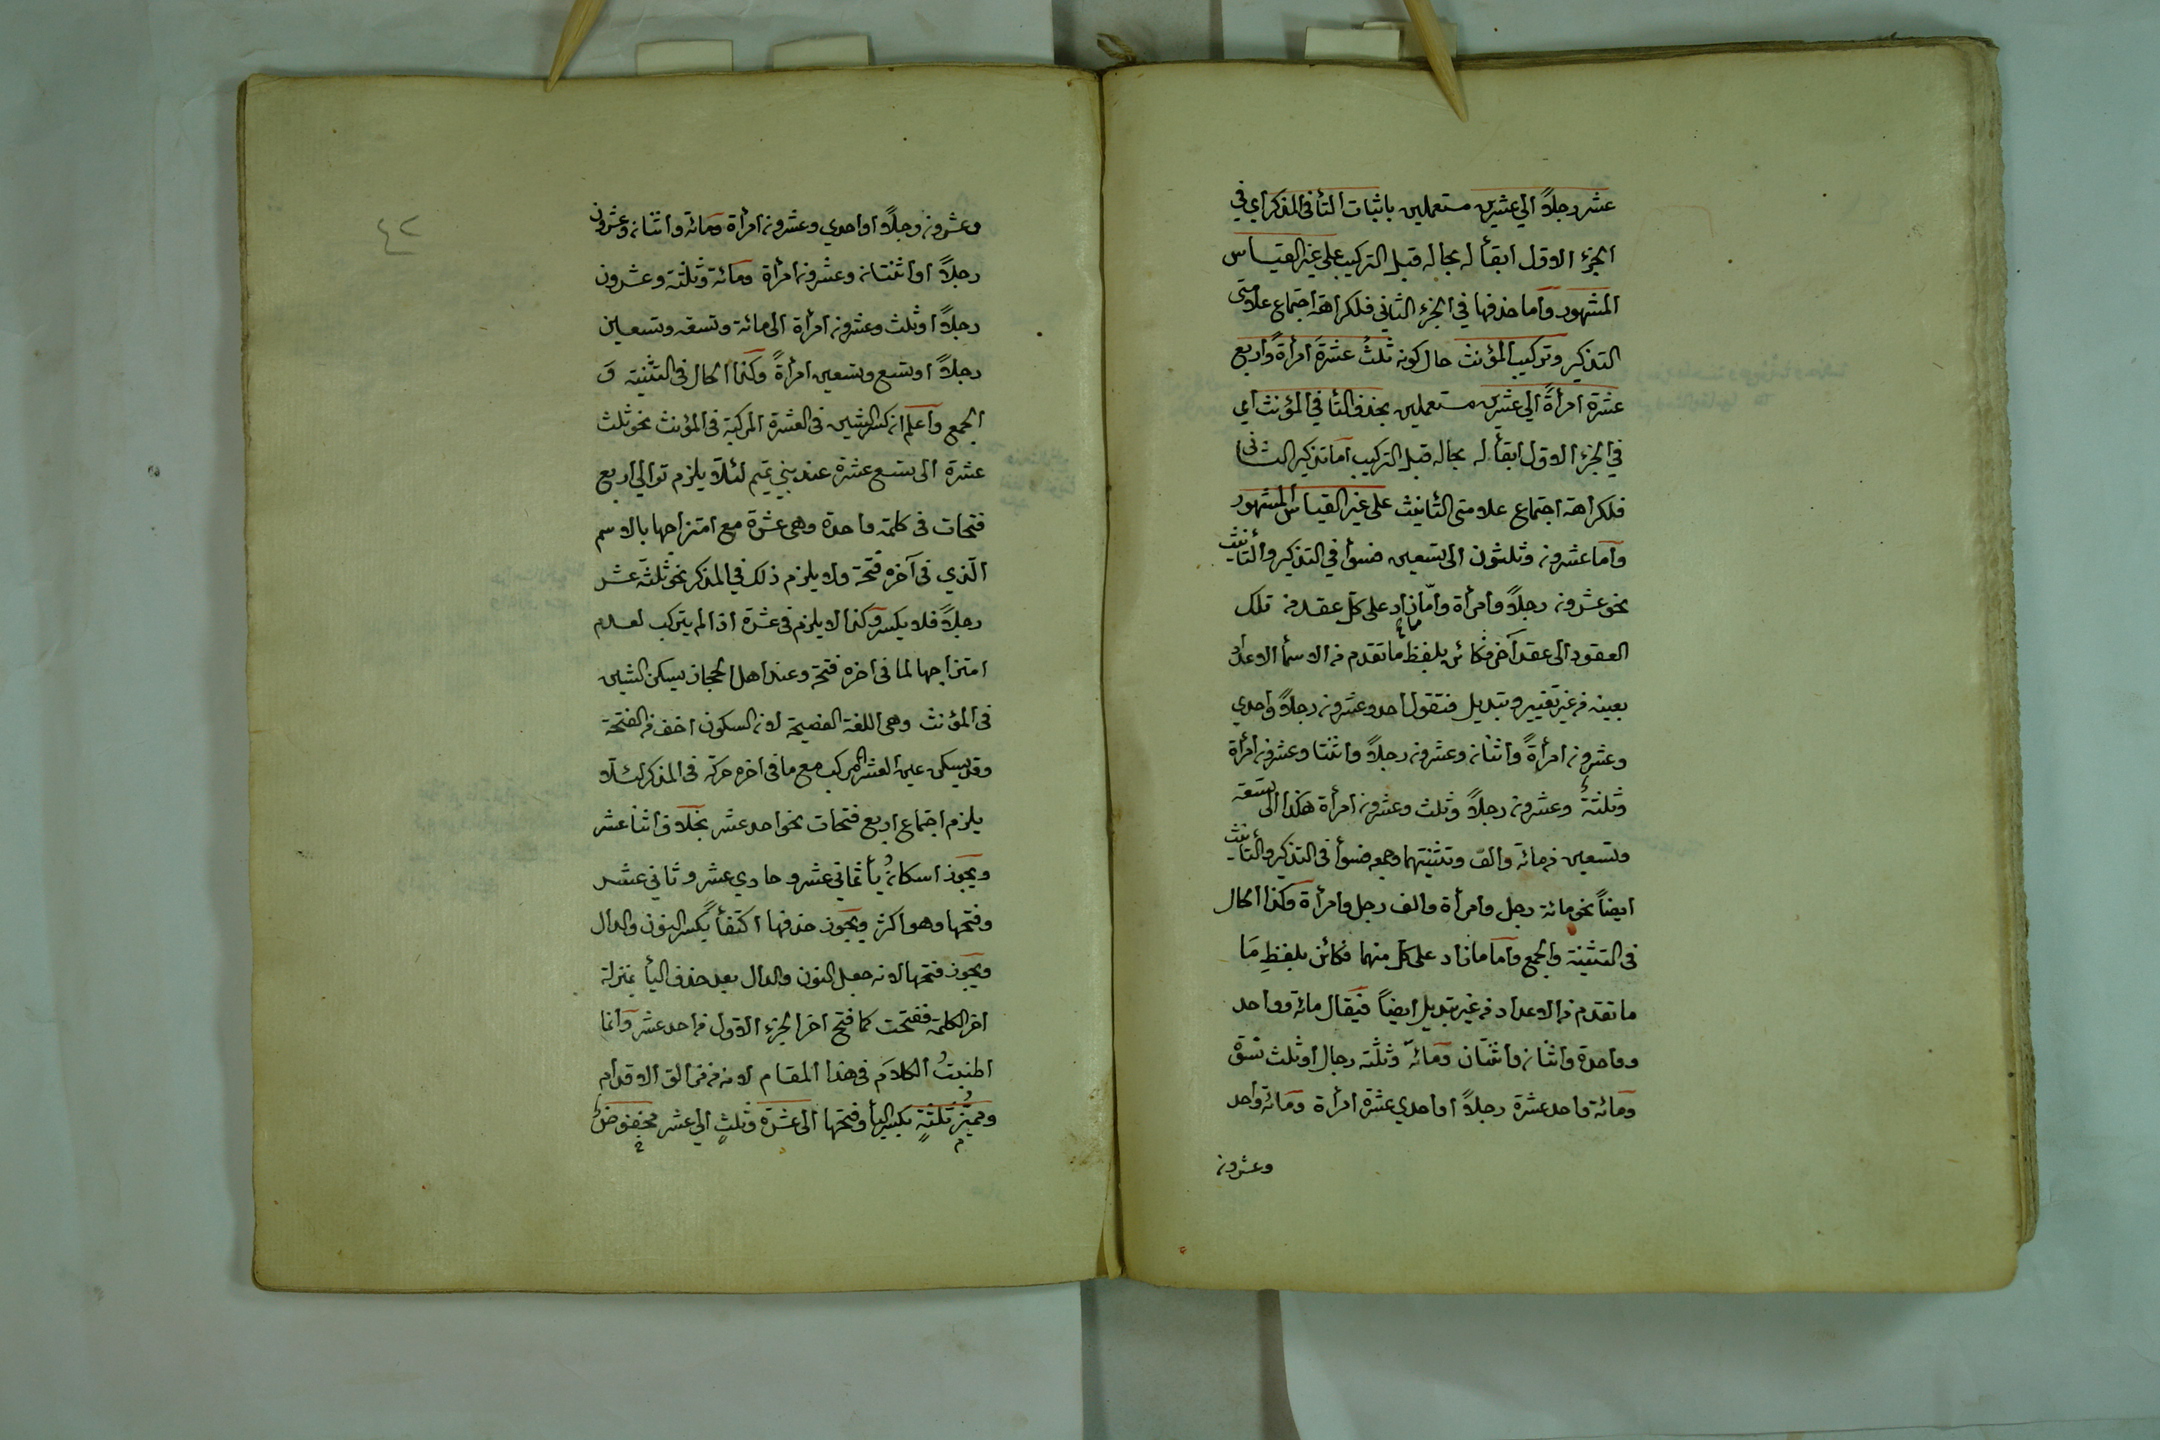 عشر رجلاً الي عشرين مستعملين باثبات التأ في المذكر اي في
الجزء الاول ابقأ له بحاله قبل التركيب علي غير القياس
المشهور وأما حذفها في الجزء الثاني فلكراهة اجتماع علامتي
التذكير وتركيب المؤنث حال كونه ثلثُ عشرةَ امرأةً واربع
عشرة امرأةً الي عشرين مستعملين بحذف التأ في المؤنث اي
في الجزء الاول ابقأ له بحاله قبل التركيب اما تذكير الثاني
فلكراهة اجتماع علامتي التأنيث علي غير القياس المشهور
وأما عشرونه وثلثون الي تسعين فسوأ في التذكير والتأنيث
نحو عشرونه رجلاً وامرأة وأمّا زاد علي كل عقد من تلك
العقود الي عقد آخر فكائن بلفظ ما تقدم من الاسمأ الاعداد
بعينه من غير تغيير وتبديل فتقول احد وعشرونه رجلاً واحدي
وعشرونه امرأةً واثنانه وعشرونه رجلاً واثنتا وعشرونه امرأة
وثلثةٌ وعشرونه رجلاً وثلث وعشرونه امرأة هكذا الي تسعة
وتسعين من مائة والف وتثنيتهما وجمعه فسوأ في التذكير والتأنيث
ايضاً نحو مائة رجل وامرأة والف رجل وامرأة وكذا الحال
في التثنية والجمع وأما ما زاد علي كل منهما فكائن بلفظِ مَا
ما تقدم من الاعداد من غير تبديل ايضاً فيقال مائة وواحد
وواحدة واثنانه واثنتان ومائة وثلثة رجال او ثلث نسوة
ومائة واحد عشرة رجلاً او احدي عشرة امرأة ومائة واحد
وعشرونه
٤٢
وعشرونه رجلاً او احدي وعشرونه امرأة ومائة واثنانه وعشرون
رجلاً او اثنتانه وعشرونه امرأة ومائة وثلثة وعشرون
رجلاً او ثلث وعشرونه امرأة الي مائة وتسعة وتسعين
رجلاً او تسع وتسعين امرأةً وكذا الحال في التثنية وَ
الجمع وأعلم انه كسر الشين في العشرة المركبة في المؤنث نحو ثلث
عشرة الي تسع عشرة عند بني تميم لئلا يلزم توالي اربع
فتحات في كلمة واحدة وهي عشرة مع امتزاجها بالاسم
الّذي في آخره فتحة ولا يلزم ذلك في المذكر نحو ثلثة عشر
رجلاً فلا يكسر وكذا لا يلزم في عشرة اذا لم يتركب لعدم
امتزاجها لما في اخره فتحة وعند اهل الحجاز يسكن الشين
في المؤنث وهي اللغة الفصيحة لانه السكون اخف من الفتحة
وقد يسكن عين العشر المركب مع ما في اخره حركة في المذكر لئلا
يلزم اجتماع اربع فتحات نحو احد عشر بخلاف اثنا عشر
ويجوز اسكانه يأ ثماني عشر وحادي عشر وثاني عشر
وفتحها وهو اكثر ويجوز حذفها اكتفأً بكسر النون والدال
ويجوز فتحها لانه جعل النون والدال بعد حذف اليأ بمنزلة
اخر الكلمة ففتحت كما فتح اخر الجزء الاول من احد عشر وانما
اطنبتُ الكلامَ في هذا المقام لانه من مزالق الاقدام
ومميّز ثلثةٍ بكسر اليأ وفتحها الي عشرة وثلثٍ الي عشر مخفوضٌ